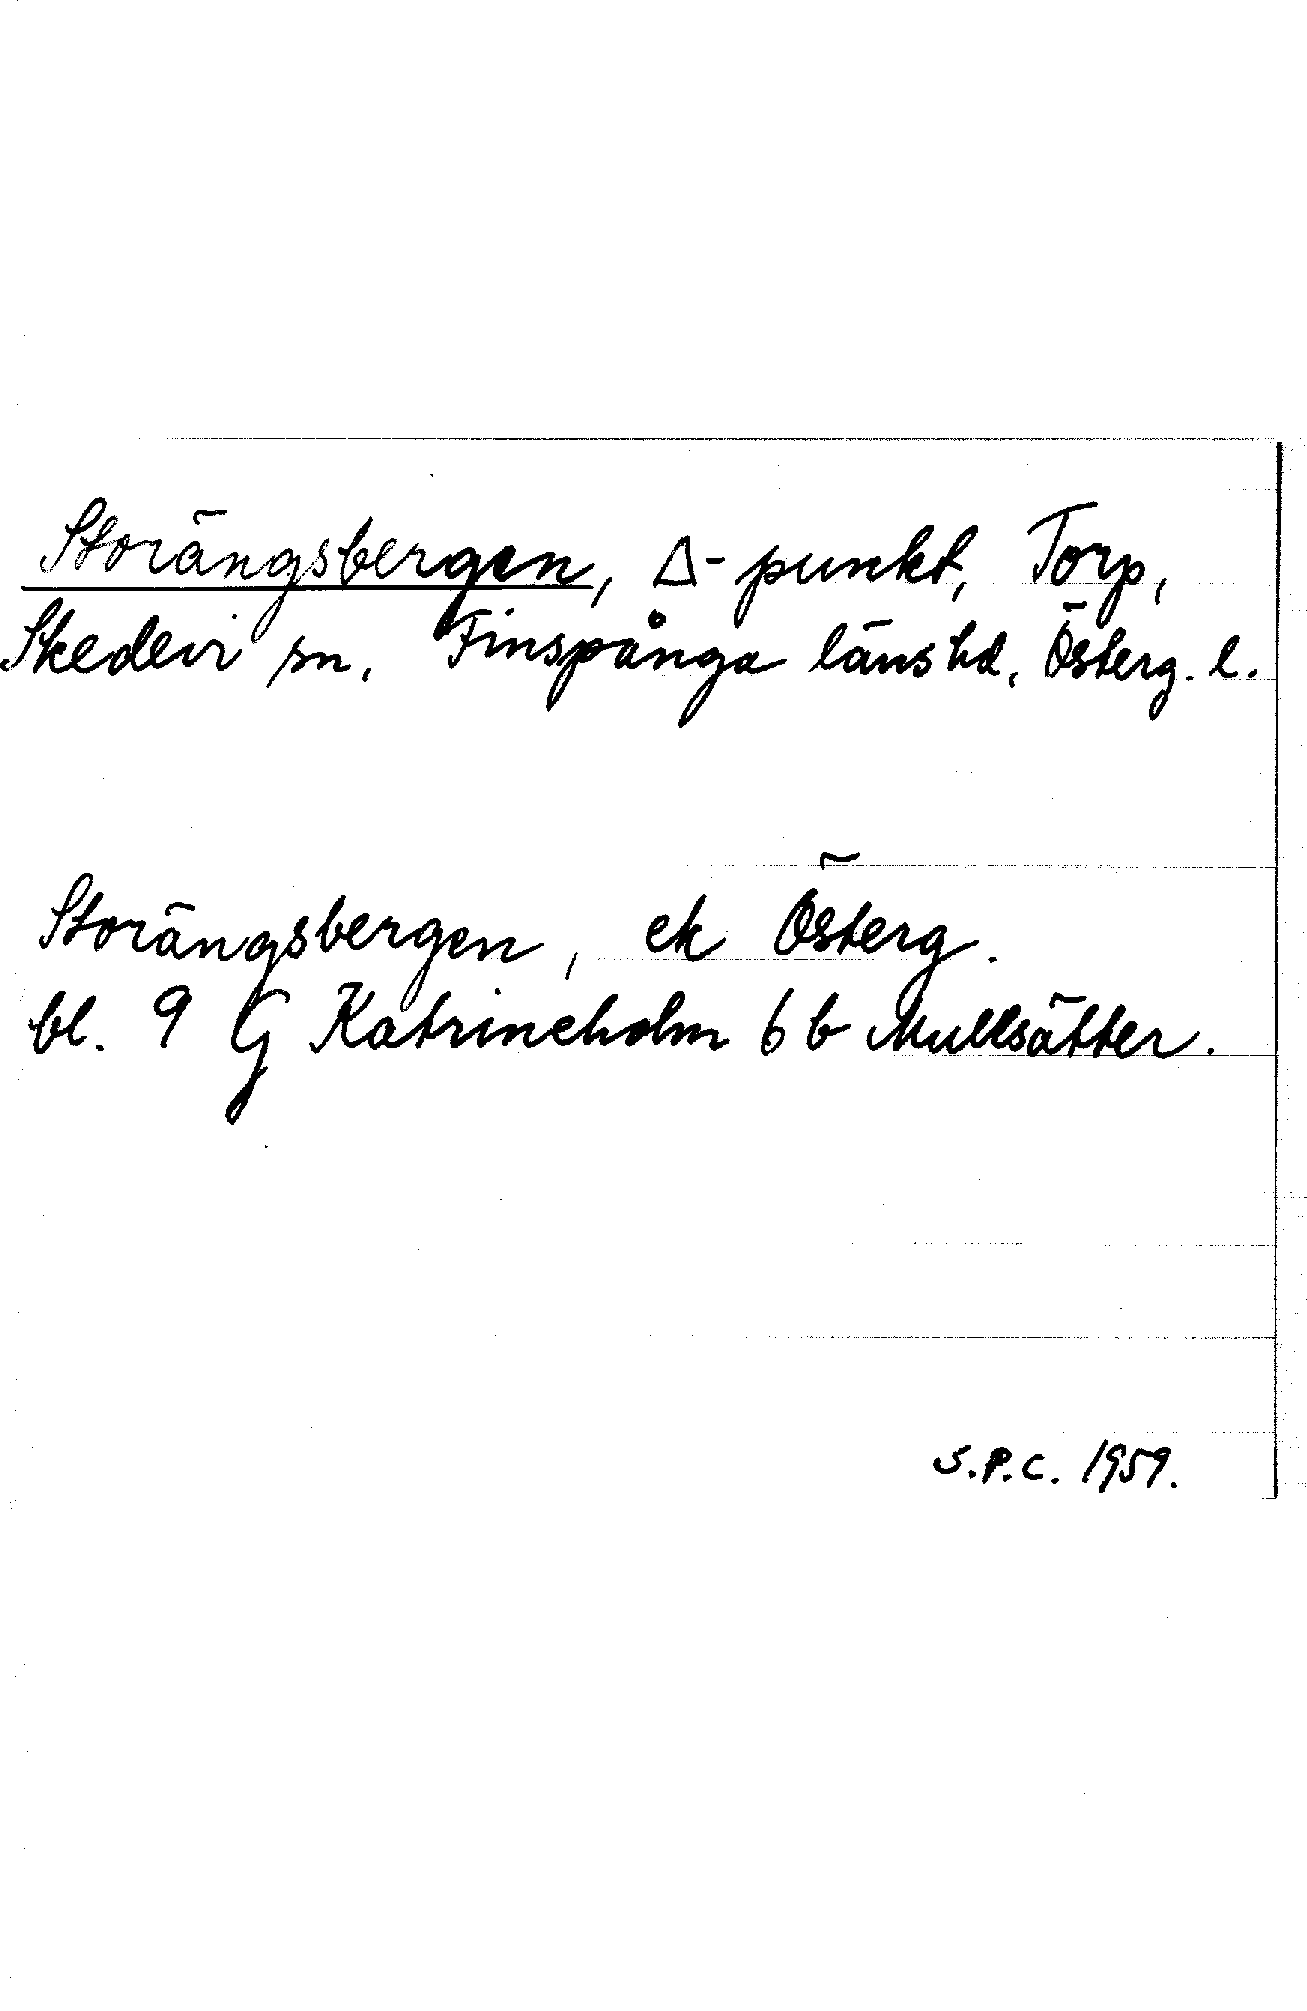 Storängsbergen, Δ-punkt, Torp,
Skedevi sn. Finspånga länshd, Österg. l.
Storängsbergen, ek Österg.
bl. 9 G Katrineholm 6 b Mullsätter.
S.P.C. 1959.